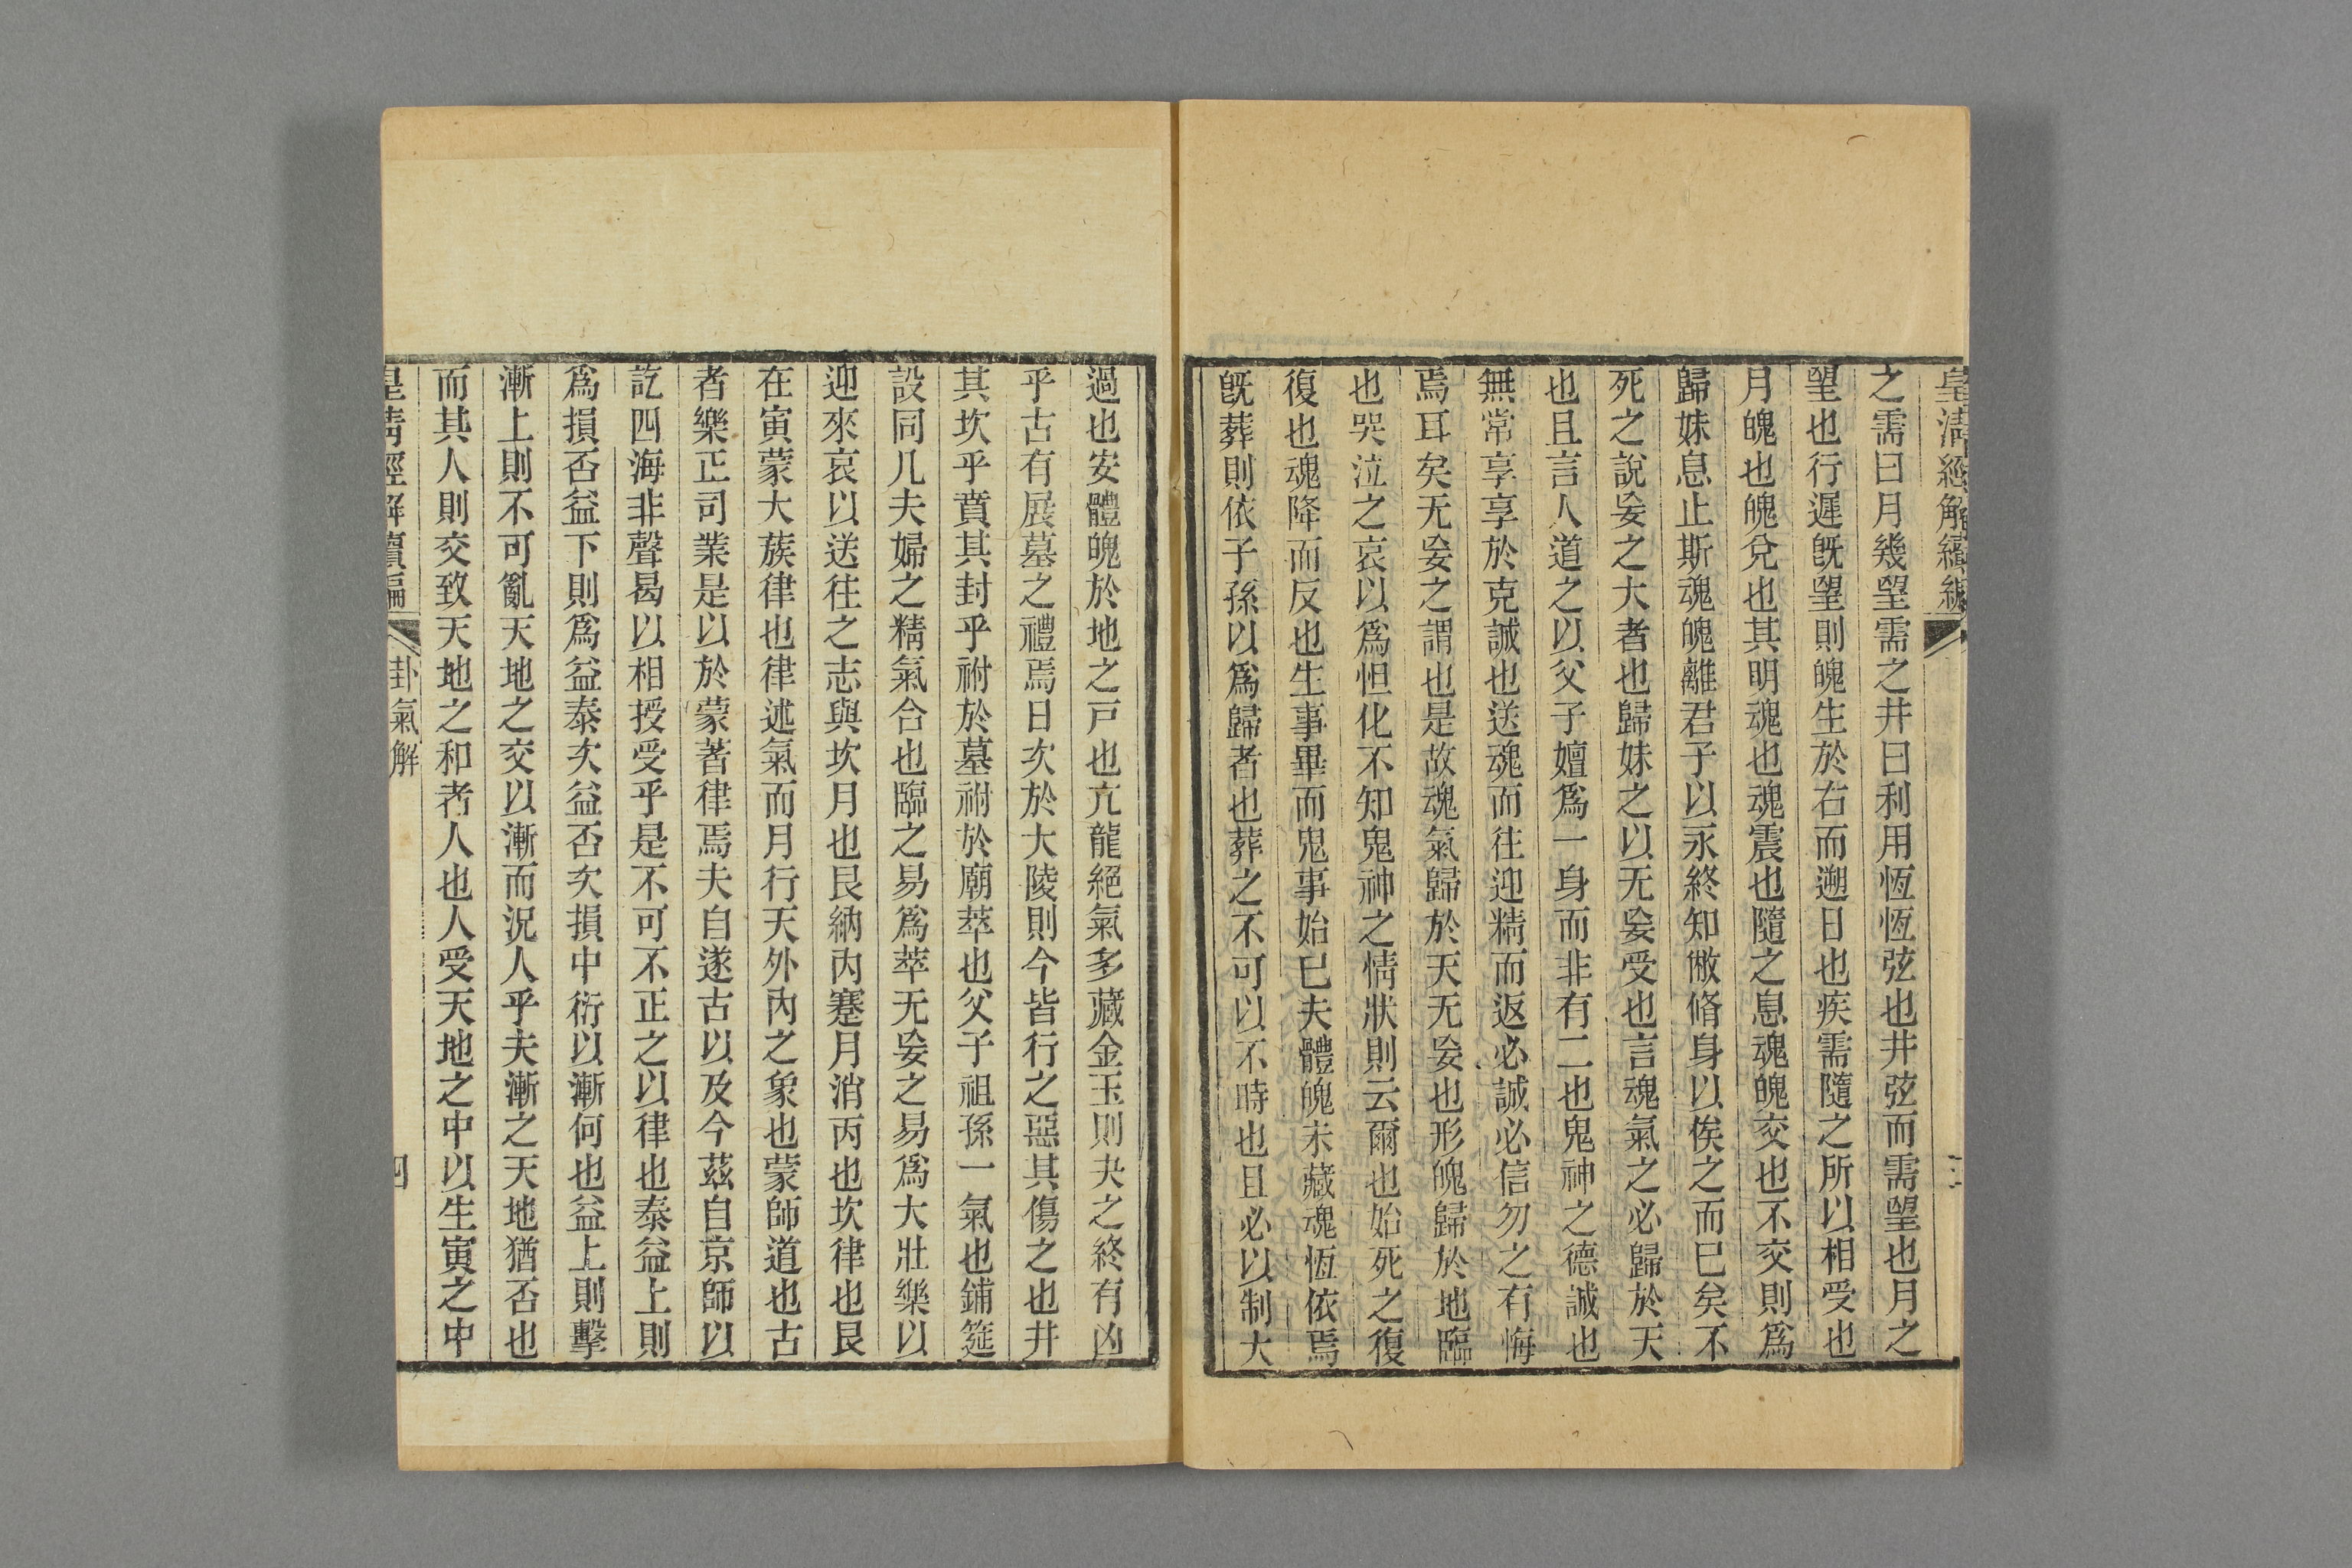 皇清經解續編 三
之需曰月幾望需之井曰利用恆恆弦也井弦而需望也月之
望也行遲既望則魄生於右而遡日也疾需隨之所以相受也
月魄也魄兌也其明魂也魂震也隨之息魂魄交也不交則爲
歸妹息止斯魂魄離君子以永終知敝脩身以俟之而已矣不
死之說妄之大者也歸妹之以无妄受也言魂氣之必歸於天
也且言人道之以父子嬗爲一身而非有二也鬼神之德誠也
無常享享於克誠也送魂而往迎精而返必誠必信勿之有悔
焉耳矣无妄之謂也是故魂氣歸於天无妄也形魄歸於地臨
也哭泣之哀以爲怛化不知鬼神之情狀則云爾也始死之復
復也魂降而反也生事畢而鬼事始已夫體魄未藏魂恆依焉
既葬則依子孫以爲歸者也葬之不可以不時也且必以制大
過也安體魄於地之戸也亢龍絕氣多藏金玉則夬之終有凶
乎古有展墓之禮焉日次於大陵則今皆行之惡其傷之也井
其坎乎賁其封乎祔於墓祔於廟萃也父子祖孫一氣也鋪筵
設同几夫婦之精氣合也臨之易爲萃无妄之易爲大壯樂以
迎來哀以送往之志與坎月也艮納丙蹇月消丙也坎律也艮
在寅蒙大族律也律述氣而月行天外內之象也蒙師道也古
者樂正司業是以於蒙著律焉夫自遂古以及今茲自京師以
訖四海非聲曷以相授受乎是不可不正之以律也泰益上則
爲損否益下則爲益泰次益否次損中衍以漸何也益上則擊
漸上則不可亂天地之交以漸而況人乎夫漸之天地猶否也
而其人則交致天地之和者人也人受天地之中以生寅之中
皇清經解續編 卦氣解 四